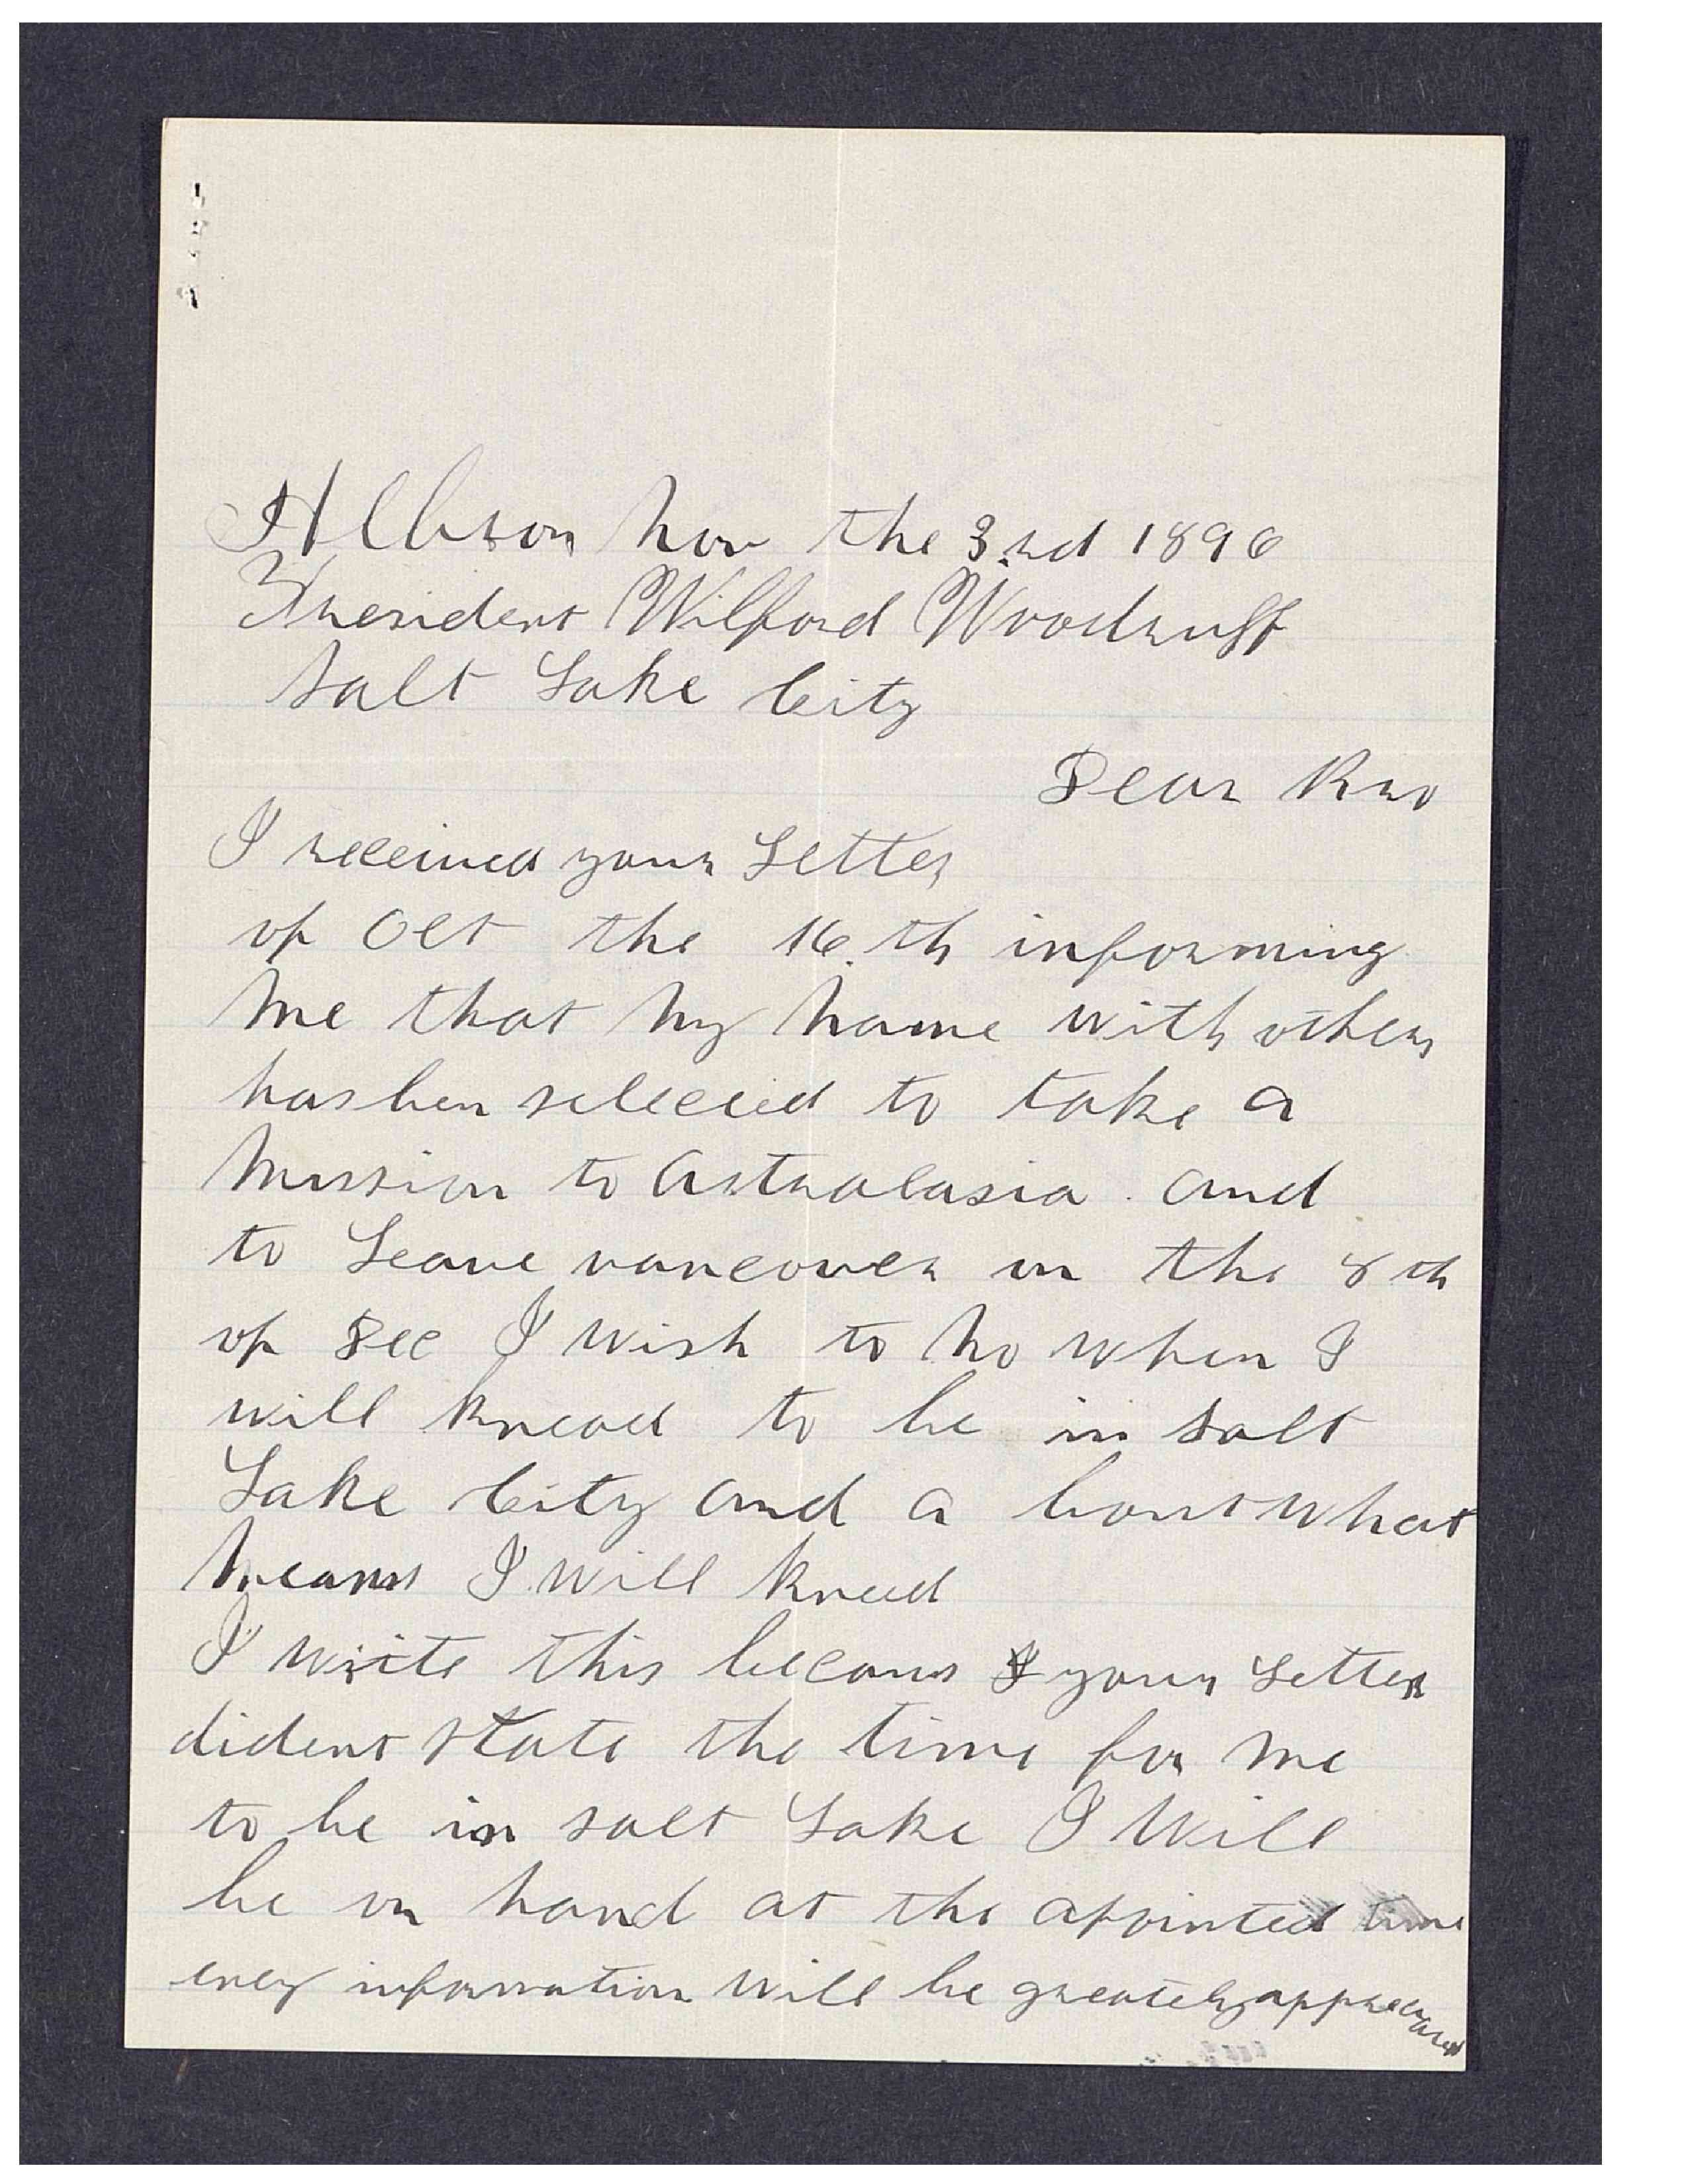 Albion Nov the 3.rd 1896
President Wilford Woodruff
Salt Lake City
Dear Bro
I received your Letter
of Oct the 16.th informing
me that my name with others
has ben selected to take a
mission to Astralasia. and
to Leave vancouver on the 8th
of Dec I wish to no when I
will knead to be in Salt
Lake City and a bout what
means I will kneed
I write this becaus your Letter
dident state the time for me
to be in salt Lake I Will
be on hand at the apointed time
eney information will be greately appreciated